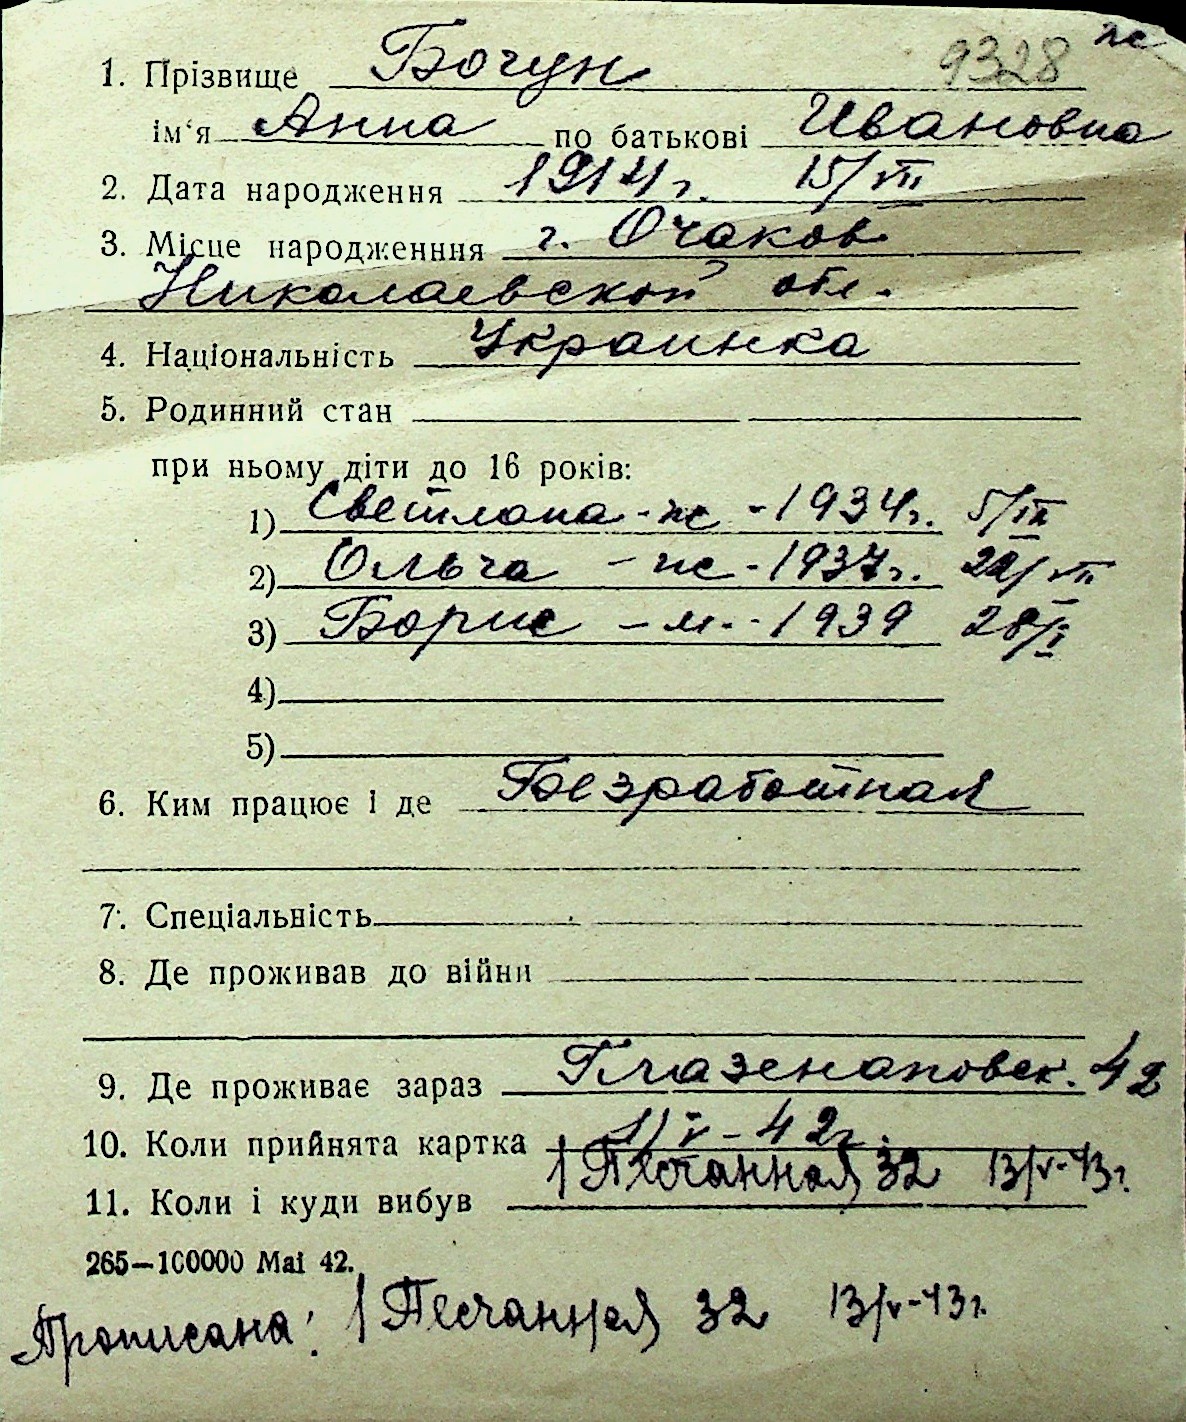 9328 ж
1. Прізвище Бочун
ім'я Анна по батькові Ивановна
2. Дата народження 1914 г. 15/VII
3. Місце народженння г. Очаков
Николаевской обл.
4. Національність Украинка
5. Родинний стан
при ньому діти до 16 років:
1) Светлана - ж - 1934 г. 5/III
2) Ольга - ж - 1937 г. 22/VII
3) Борис - м. - 1939 28/I
4)
5)
6. Ким працює і де Безработная
7. Спеціальність
8. Де проживав до війни
9. Де проживає зараз Глазенаповск. 42
10. Коли прийнята картка 1/V - 42 г.
11. Коли і куди вибув 1 Песчанная 32 13/V-43 г.
265—100000 Mai 42.
Прописана: 1 Песчанная 32 13/V-43 г.